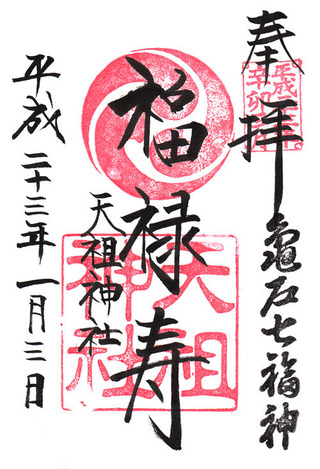 奉拝
亀石七福神
福禄寿
天祖神社
平成二十三年一月三日
天祖神社
平成
辛卯